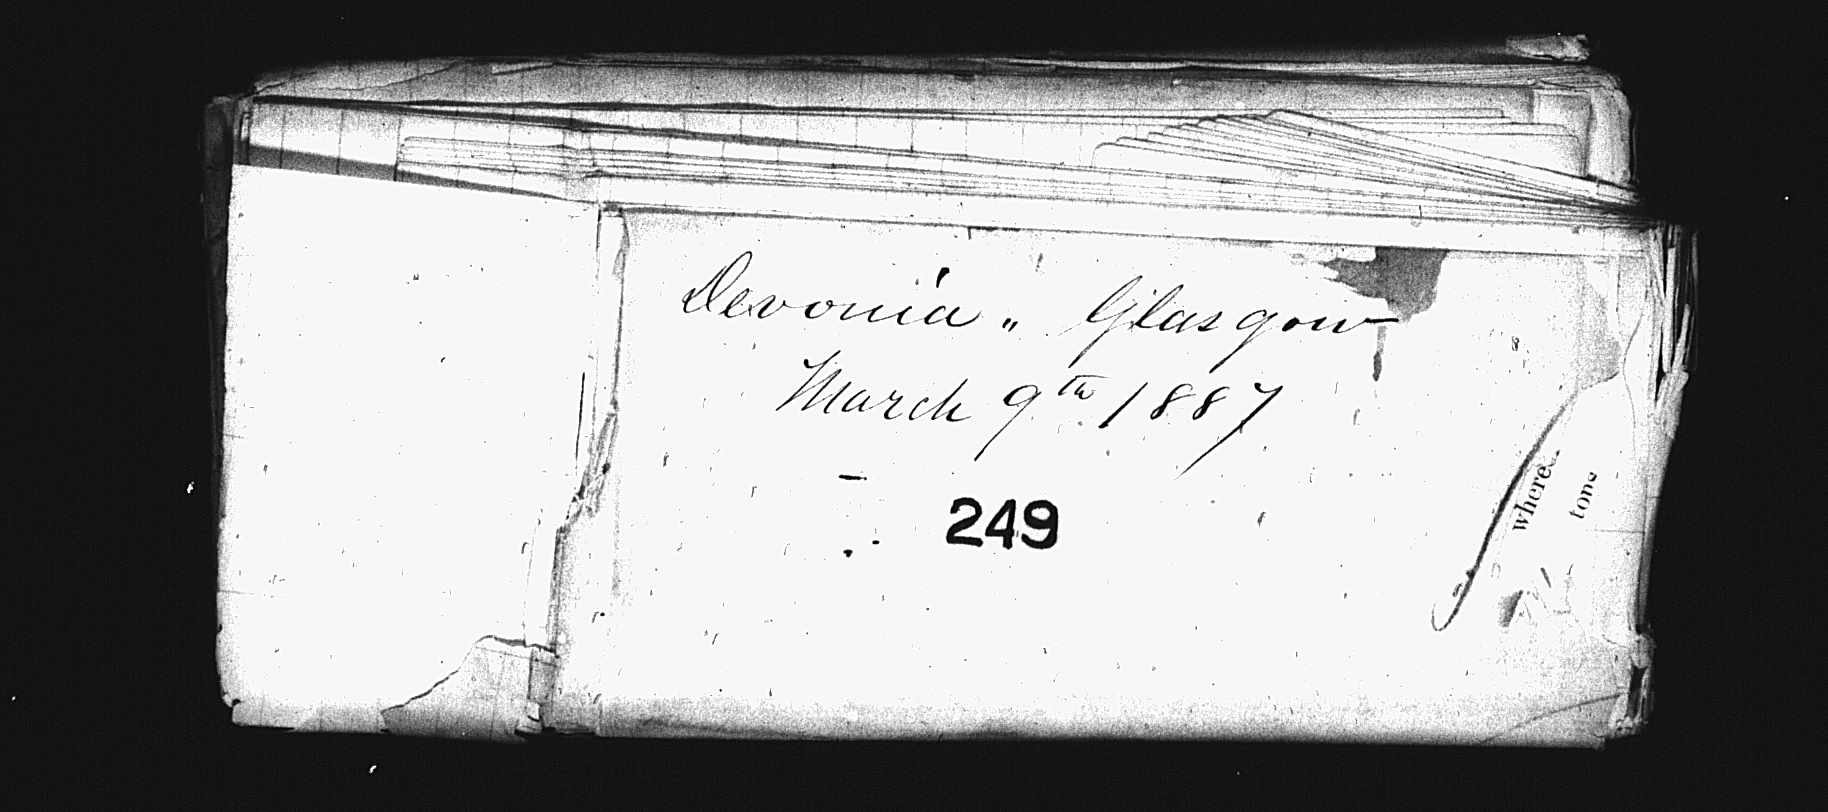 Devonia " Glasgow
March 9th 1887
249
where
tons